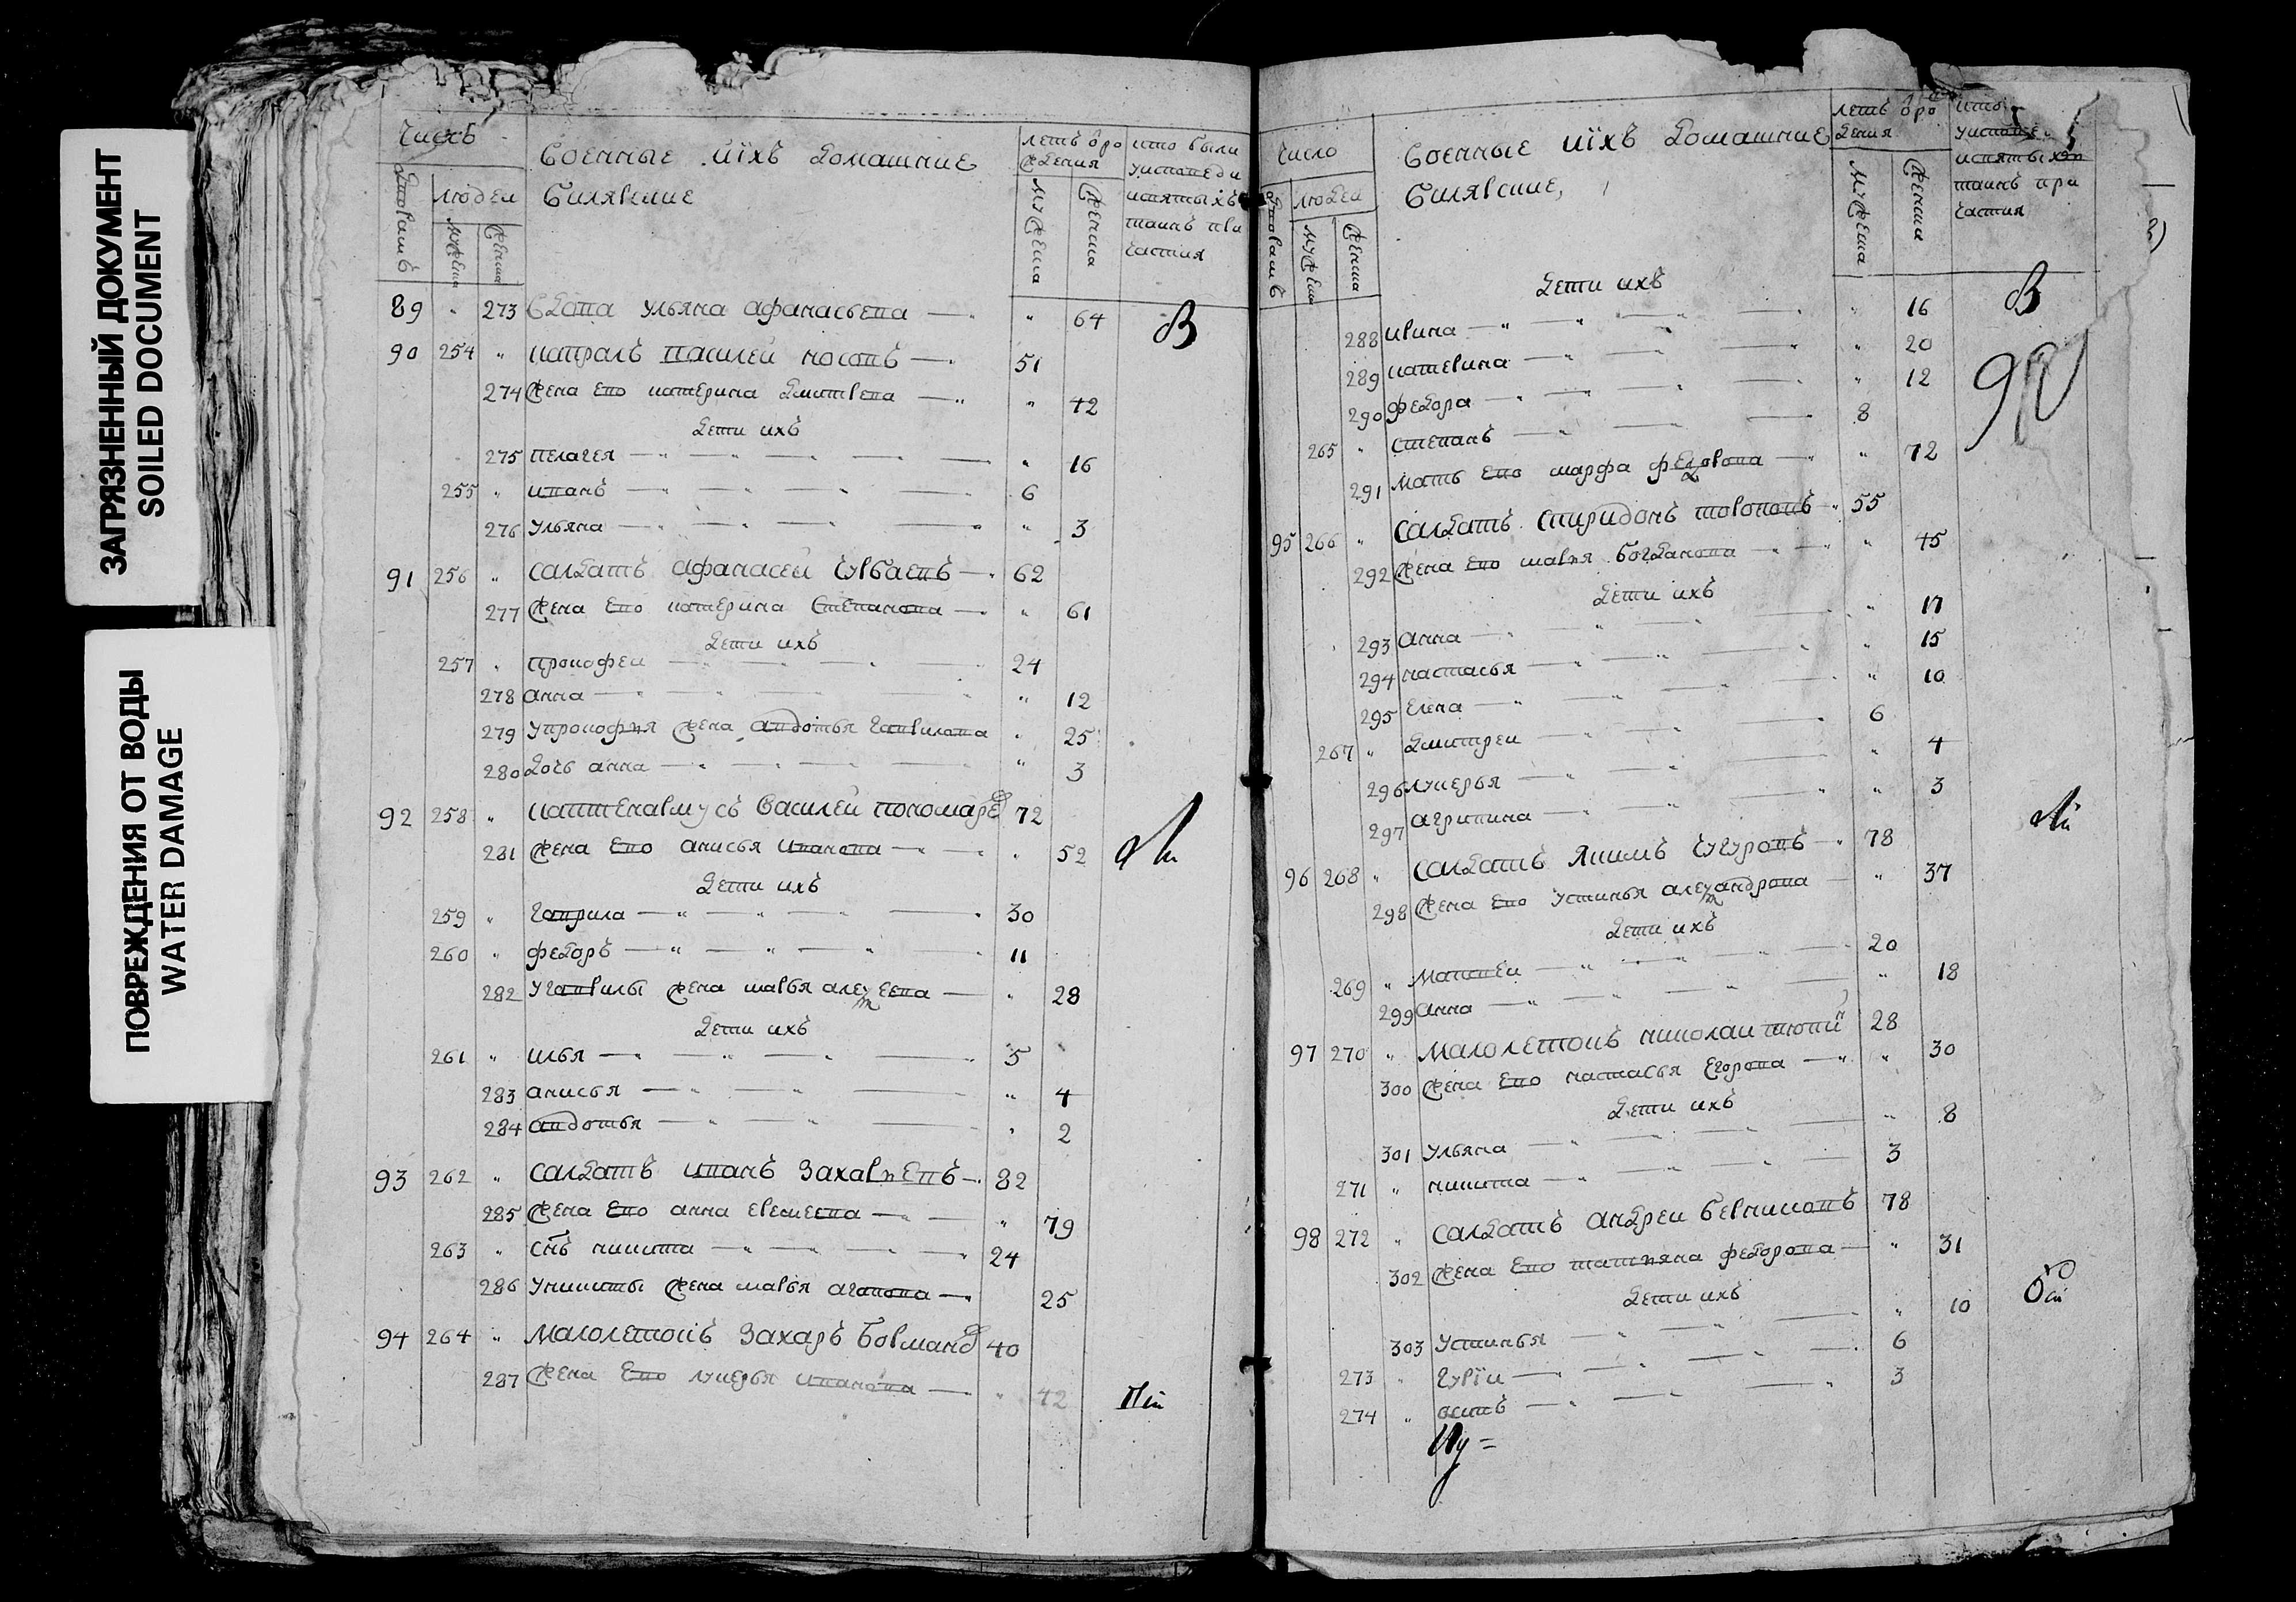 ЗАГРЯЗНЕННЫЙ ДОКУМЕНТ
SOILED DOCUMENT
ПОВРЕЖДЕНИЯ ОТ ВОДЫ
WATER DAMAGE
Числъ
Дворавъ
людеи
мужеска
женска
Военные иїхъ домашние
Билявские
летъ ѿро
ждения
мужеска
женска
кто были
уисповеди
исвятыхъ
таинъ при
частия
89 " 273 Вдова ульяна афанасьева " 64
В
90 254 " капралъ василеи носовъ 51
274 жена ево катерина дмитрева " 42
Дети ихъ
275 пелагея " 16
255 " иванъ 6
276 ульяна " 3
91 256 " салдатъ афанасеи чурбаевъ 62
277 жена ево катерина степанова " 61
Дети ихъ
257 " прокофеи 24
278 анна " 12
279 упрокофия жена авдотья гаврилова " 25
280 дочь анна " 3
92 258 " каптенармусъ василеи пономаре 72
281 жена ево анисья иванова " 52
Дети ихъ
259 " гаврила 30
260 " федоръ 11
282 угаврилы жена марья алеѯеева " 28
Дети ихъ
261 " илья 5
283 анисья " 4
284 авдотья " 2
93 262 " салдатъ иванъ захарьевъ 82
285 жена ево анна еремеева " 79
263 " снъ никита 24
286 уникиты жена марья агапова 25
94 264 " малолетокъ захаръ борман 40
287 жена ево лукерья иванова " 42
Число
Дворавъ
людеи
мужеска
женска
Военные иїхъ домашние
Билявские,
летъ ѿро
ждения
мужеска
женска
кто
уиспове
исвятыхъ
таинъ при
частия
Дети ихъ
288 ирина " 16
В
289 катерина " 20
290 федора " 12
90
265 " степанъ 8
291 мать ево марфа федорова " 72
95 266 " салдатъ спиридонъ тороповъ 55
292 жена ево марья богданова " 45
Дети ихъ
293 анна " 17
294 настасья " 15
295 елена " 10
267 " дмитреи 6
296 лукерья " 4
297 агрипина " 3
96 268 " салдатъ якимъ чугуровъ 78
298 жена ево устинья алеѯандрова " 37
Дети ихъ
269 " матвеи 20
299 анна " 18
97 270 " малолетокъ николаи 28
300 жена ево настасья егорова " 30
Дети ихъ
301 ульяна " 8
271 " никита 3
98 272 " салдатъ андреи берниковъ 78
302 жена ево татияна федорова " 31
Дети ихъ
303 устинья " 10
273 " гурїи 6
274 " осипъ 3